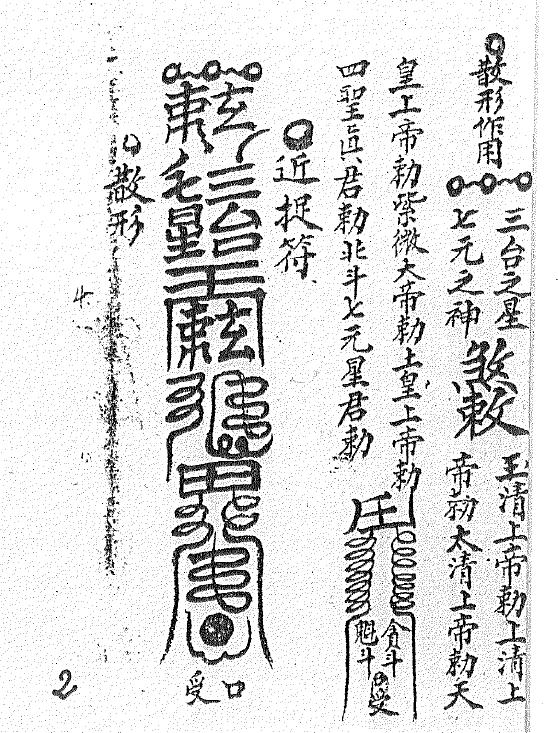 散形作用
三台之星
七元之神
煞敕
玉清上帝勅上清上
帝勅太清上帝勅天
皇上帝勅紫微大帝勅土皇上帝勅
四聖真君勅北斗七元星君勅
貪斗
魁斗
受
近捉符
三台
七星
口受
散形
4
2